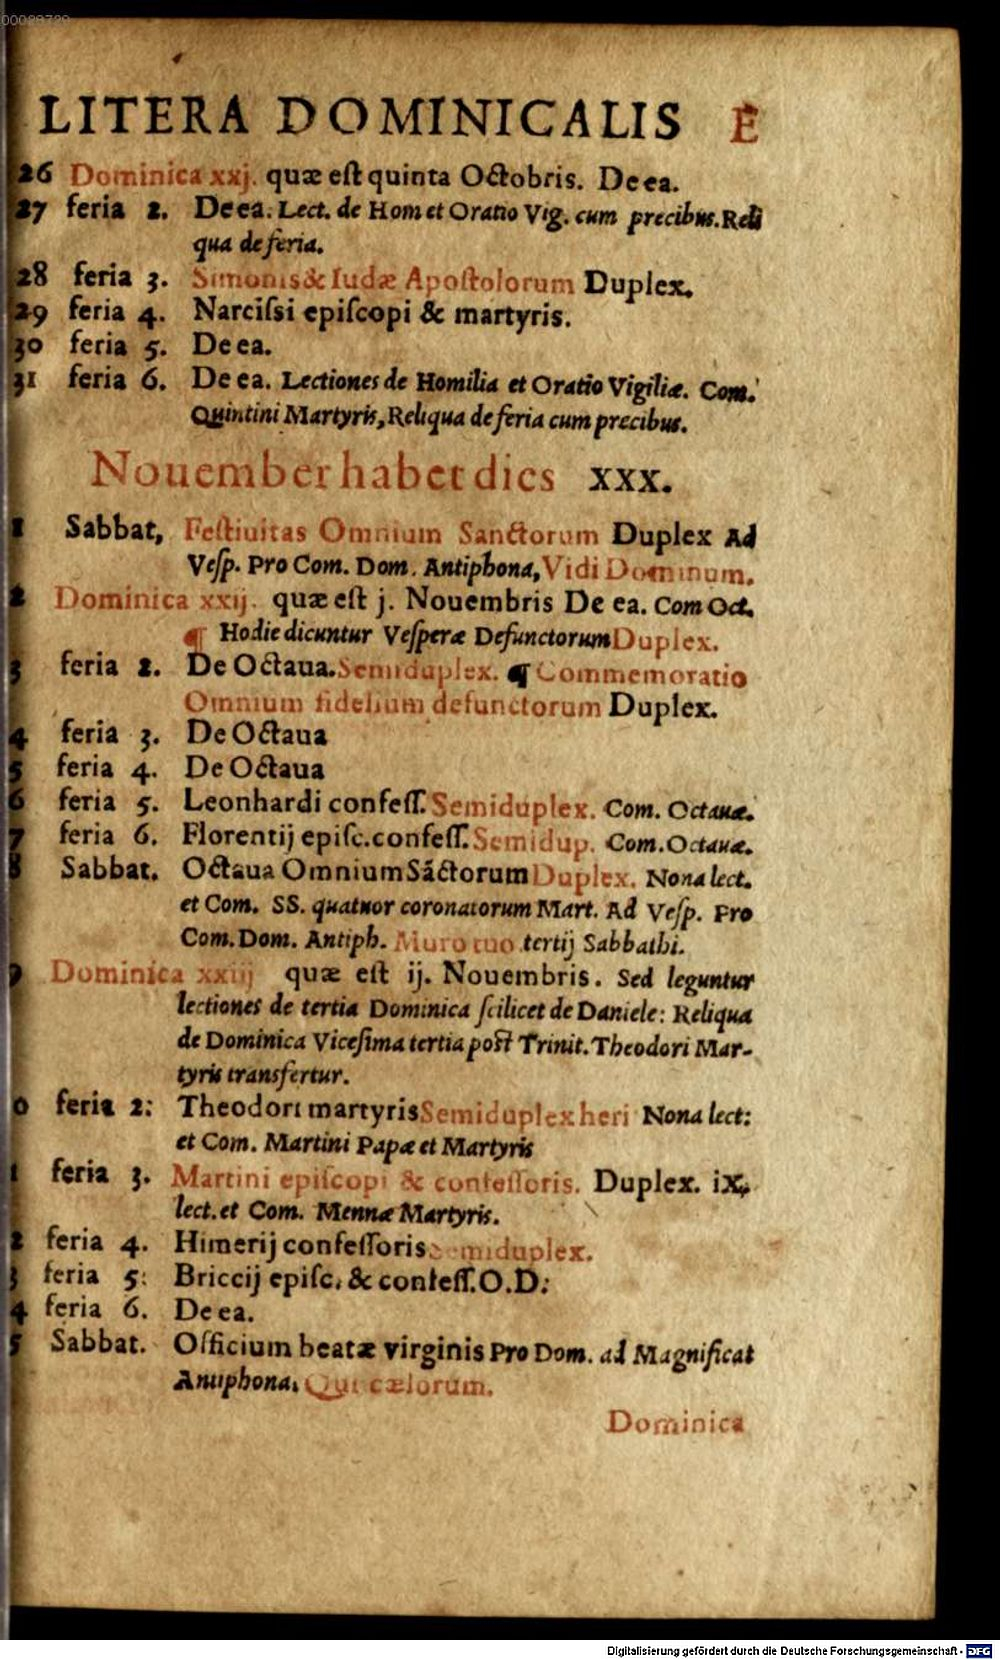 00028729
LITERA DOMINICALIS E
26 Dominica xxj. quæ eſt quinta Octobris. De ea.
27 feria 2. De ea. Lect. de Hom et Oratio Vig. cum precibus. Reli
qua de feria.
28 feria 3. Simonis & Iudæ Apoſtolorum Duplex.
29 feria 4. Narciſsi epiſcopi & martyris.
30 feria 5. De ea.
31 feria 6. De ea. Lectiones de Homilia et Oratio Vigiliæ. Com.
Quintini Martyris, Reliqua de feria cum precibus.
Nouember habet dies XXX.
1 Sabbat, Feſtiuitas Omnium Sanctorum Duplex Ad
Veſp. Pro Com. Dom. Antiphona, Vidi Dominum.
2 Dominica xxij. quæ eſt j. Nouembris De ea. Com Oct.
¶ Hodie dicuntur Veſperæ Defunctorum Duplex.
3 feria 2. De Octaua. Semiduplex. ¶ Commemoratio
Omnium fidelium defunctorum Duplex.
4 feria 3. De Octaua
5 feria 4. De Octaua
6 feria 5. Leonhardi confeſſ. Semiduplex. Com. Octauæ.
7 feria 6. Florentij epiſc. confeſſ. Semidup. Com. Octauæ.
8 Sabbat. Octaua Omnium Sāctorum Duplex. Nona lect.
et Com. SS. quatuor coronatorum Mart. Ad Veſp. Pro
Com. Dom. Antiph. Muro tuo tertij Sabbathi.
9 Dominica xxiij quæ eſt ij. Nouembris. Sed leguntur
lectiones de tertia Dominica ſcilicet de Daniele: Reliqua
de Dominica Viceſima tertia poſt Trinit. Theodori Mar-
tyris transfertur.
0 feria 2: Theodori martyris Semiduplex heri Nona lect:
et Com. Martini Papæ et Martyris
1 feria 3. Martini epiſcopi & confeſſoris. Duplex. iX.
lect. et Com. Mennæ Martyris.
2 feria 4. Himerij confeſſoris Semiduplex.
3 feria 5: Briccij epiſc. & confeſſ. O. D:
4 feria 6. De ea.
5 Sabbat. Officium beatæ virginis Pro Dom. ad Magnificat
Antiphona, Qui cælorum.
Dominica
Digitalisierung gefördert durch die Deutsche Forschungsgemeinschaft - DFG